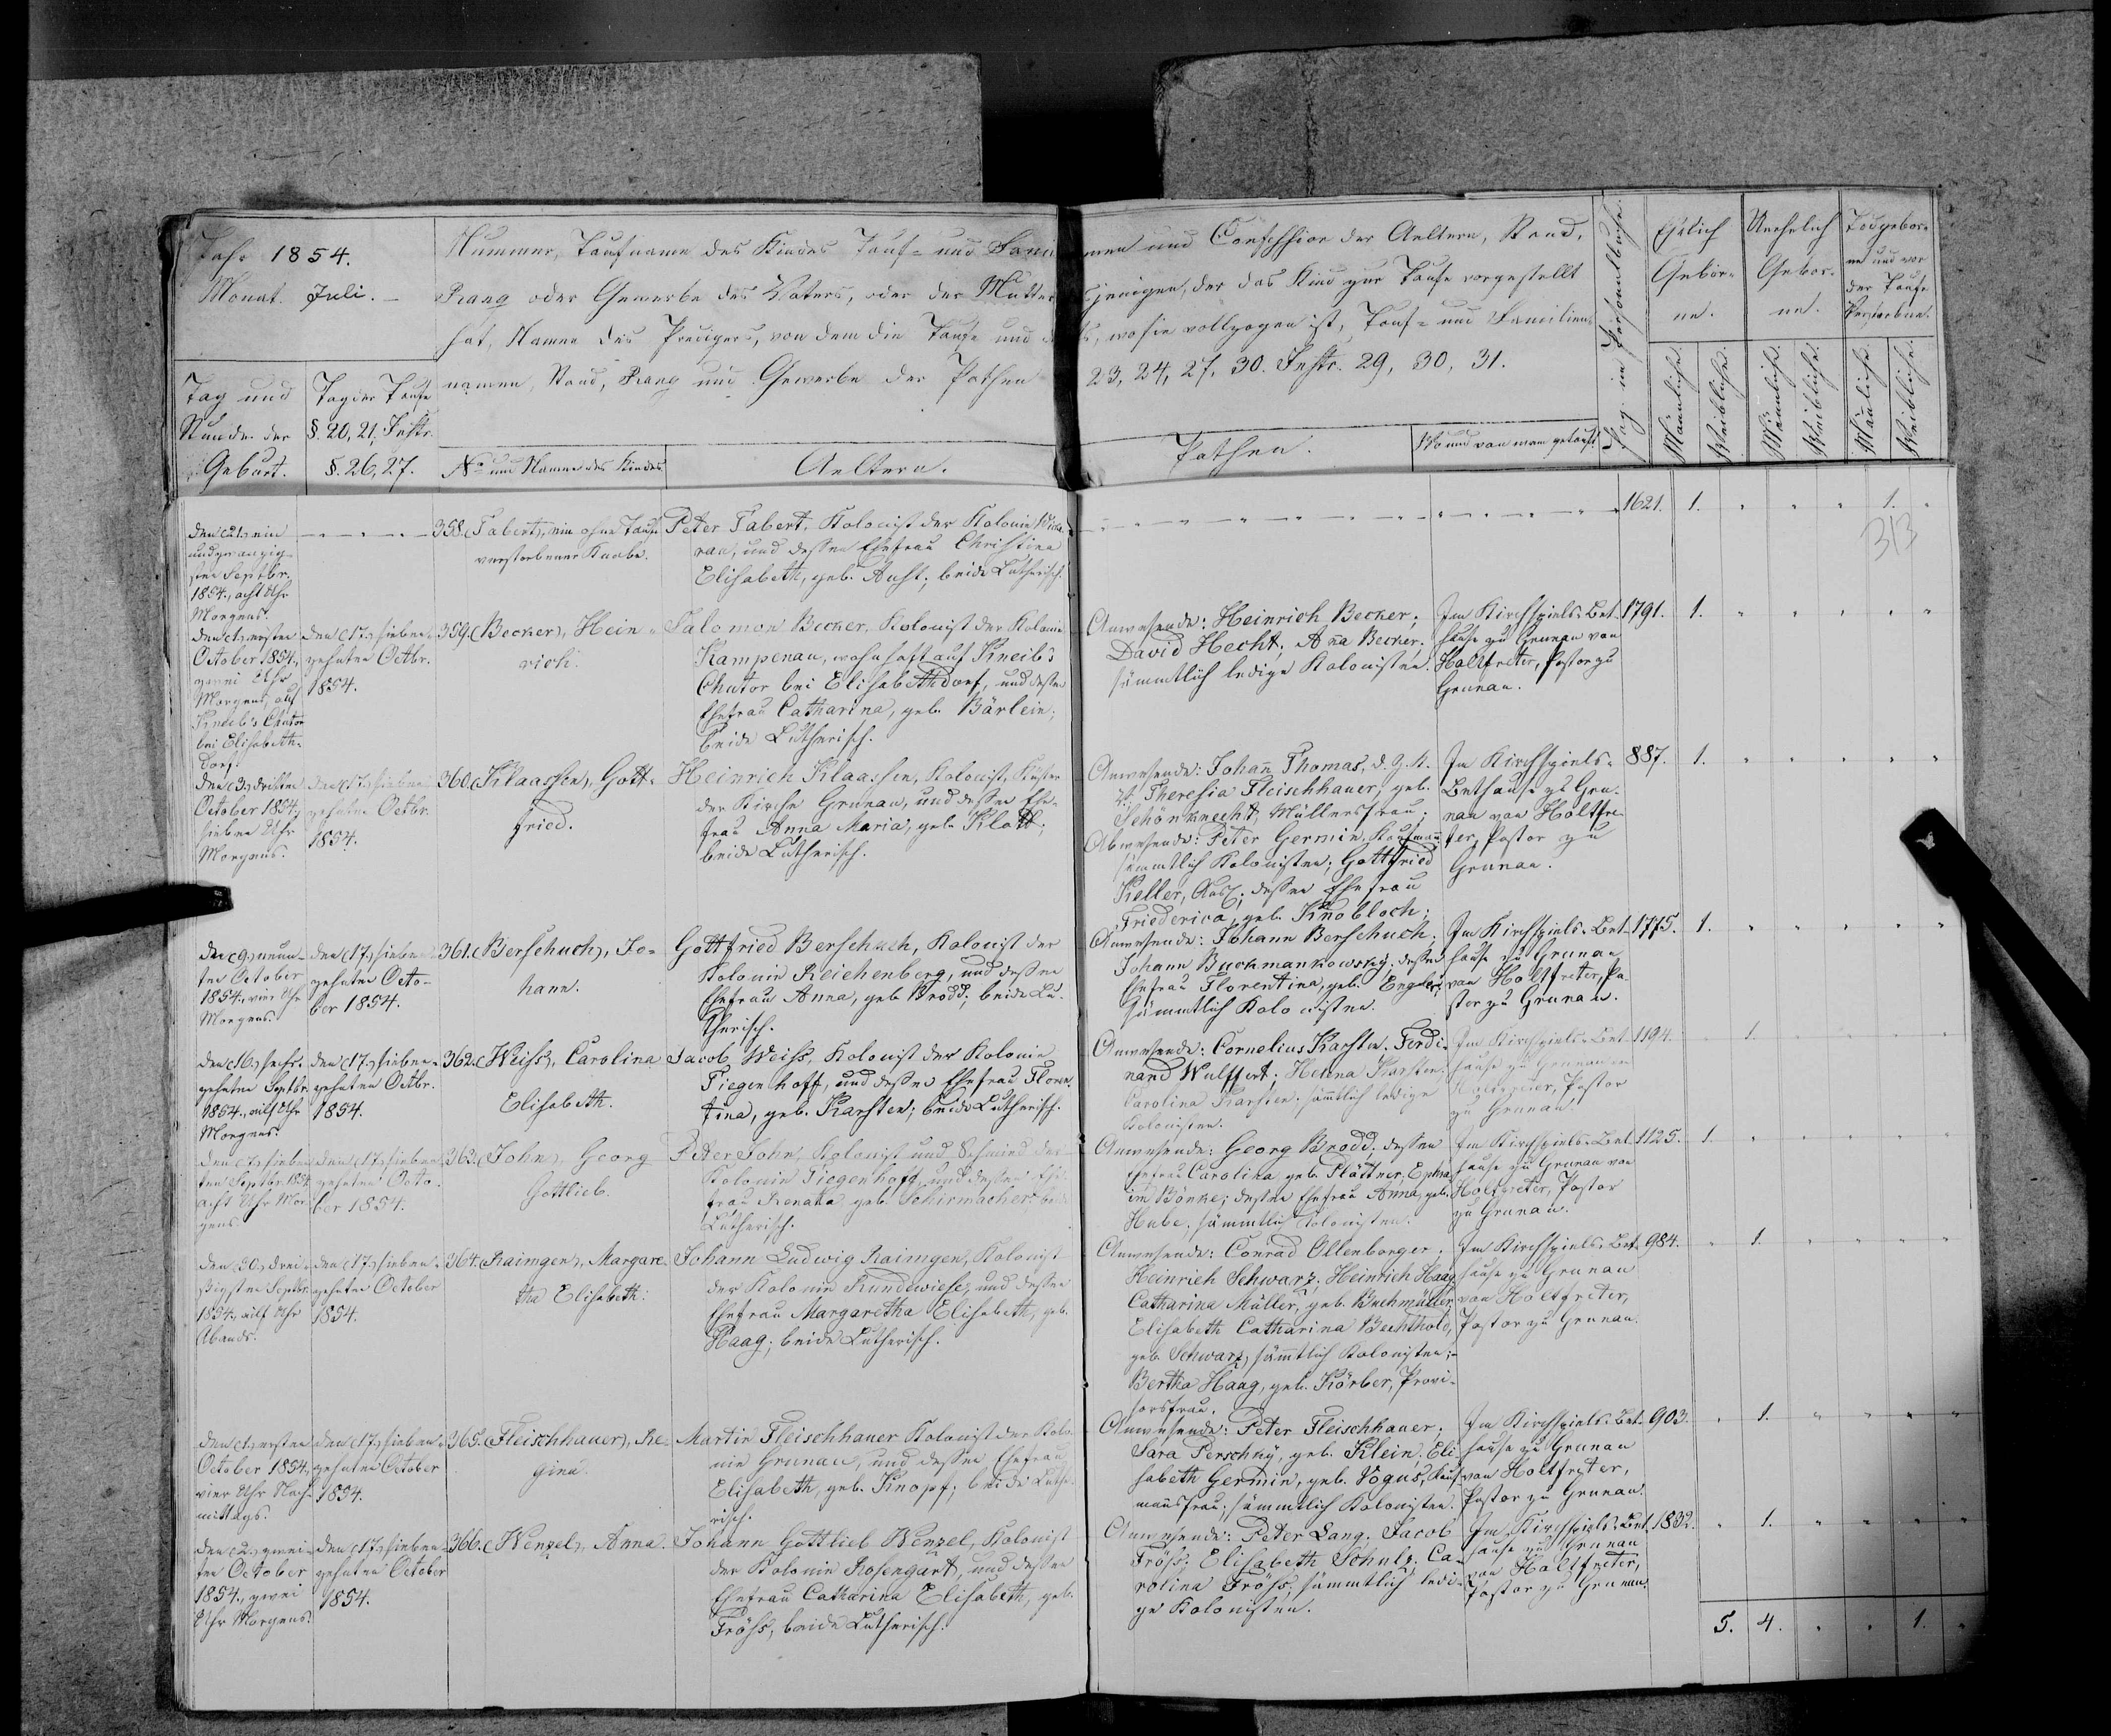 Jahr 1854.
Monat. Juli. —
Tag und
Stunde der
Geburt.
Tag der Taufe
§. 20, 21, Instr.
§. 26, 27.
Nummer, Taufname des Kindes Tauf- und Famili
Rang oder Gewerbe des Vaters, oder der Mutter
hat, Namen des Predigers, von dem die Taufe und d
namen, Stand, Rang und Gewerbe der Pathen
No und Name des Kindes.
Aeltern.
men und Confession der Aeltern, Stand,
sjenigen, der das Kind zur Taufe vorgestellt
s, wo sie vollzogen ist, Tauf- und Familien-
23, 24, 27, 30. Instr. 29, 30, 31.
Pathen.
Wo und von wem getauft.
Pag. im Personalbuche.
Ehelich
Gebor-
ne.
Unehelich
Gebor-
ne.
Todgebor-
ne und vor
der Taufe
Verstorbene.
Männliche.
Weibliche.
Männliche.
Weibliche.
Männliche.
Weibliche.
den (21.) ein
und zwanzig-
sten Septbr.
1854., acht Uhr
Morgens.
358. (Tabert), ein ohne Taufe
verstorbener Knabe.
Peter Tabert, Kolonist der Kolonie
rau, und dessen Ehefrau Christina
Elisabeth, geb. Aust; beide Lutherisch.
1621. 1. 1.
313
den (1.) ersten
October 1854.,
zwei Uhr
Morgens, auf
Kneib's Chutor
bei Elisabeth-
dorf.
den (17.) sieben-
zehnten Octbr.
1854.
359. (Becker), Hein-
rich.
Salomon Becker, Kolonist der Kolonie
Kampenau, wohnhaft auf Kneib's
Chutor bei Elisabethdorf, und dessen
Ehefrau Catharina, geb. Bärlein;
beide Lutherisch.
Anwesende: Heinrich Becker;
David Hecht; Anna Becker;
sämmtlich ledige Kolonisten.
Im Kirchspiels-Bet-
hause zu Grunau von
Holtfreter, Pastor zu
Grunau.
1791. 1.
den (3.) dritten
October 1854.,
sieben Uhr
Morgens.
den (17.) sieben-
zehnten Octbr.
1854.
360. (Klaassen), Gott-
fried.
Heinrich Klaassen, Kolonist, Küster
der Kirche Grunau, und dessen Ehe-
frau Anna Maria, geb. Klatt;
beide Lutherisch.
Anwesende: Johann Thomas, d. G. A.
Theresia Fleischhauer, geb.
Schönknecht, Müllersfrau;
Abwesende: Peter Germin, Kaufmann
sämmtlich Kolonisten; Gottfried
Keller, dessen Ehefrau
Friederica, geb. Knobloch;
Im Kirchspiels-
Bethause zu Gru-
nau von Holtfre-
ter, Pastor zu
Grunau.
887. 1.
den (9.) neun-
ten October
1854., vier Uhr
Morgens.
den (17.) sieben-
zehnten Octo-
ber 1854.
361. (Berschuch), Jo-
hann.
Gottfried Berschuch, Kolonist der
Kolonie Reichenberg, und dessen
Ehefrau Anna, geb. Brodd; beide Lu-
therisch.
Anwesende: Johann Berschuch.
Johann Buckmankowsky; dessen
Ehefrau Florentina, geb. Engler;
sämmtlich Kolonisten.
Im Kirchspiels-Bet-
hause zu Grunau
von Holtfreter, Pa-
stor zu Grunau.
1775. 1.
den (16.) sechs-
zehnten Septbr.
1854., eilf Uhr
Morgens.
den (17.) sieben-
zehnten Octbr.
1854.
362. (Weiss), Carolina
Elisabeth.
Jacob Weiss, Kolonist der Kolonie
Tiegenhoff, und dessen Ehefrau Floren-
tina, geb. Karsten; beide Lutherisch.
Anwesende: Cornelius Karsten. Ferdi-
nand Wulffert; Karsten.
Carolina Karsten, sämtlich ledige
Kolonisten.
Im Kirchspiels-Bet-
hause zu Grunau von
Holtfreter, Pastor
zu Grunau.
1194. 1.
den (7.) sieben-
ten Septbr. 1854
acht Uhr Mor-
gens.
den (17.) sieben-
zehnten Octo-
ber 1854.
363. (John), Georg
Gottlieb.
Peter John, Kolonist und Schmied der
Kolonie Tiegenhoff, und dessen Ehe-
frau Renata, geb. Schirmacher; beide
Lutherisch.
Anwesende: Georg Brodd, dessen
Ehefrau Carolina geb. Plättner, Ephra-
im Bönke; dessen Ehefrau Anna, geb.
Hube, sämmtlich Kolonisten.
Im Kirchspiels-Bet-
hause zu Grunau von
Holtfreter, Pastor
zu Grunau.
1125. 1.
den (30.) drei-
ssigsten Septbr.
1854., eilf Uhr
Abends.
den (17.) sieben-
zehnten October
1854.
364. (Raimgen), Margare-
tha Elisabeth.
Johann Ludwig Raimgen, Kolonist
der Kolonie Rundewiese, und dessen
Ehefrau Margaretha Elisabeth, geb.
Haag; beide Lutherisch.
Anwesende: Conrad Ollenborger;
Heinrich Schwarz. Heinrich Haag;
Catharina Müller, geb. Buchmüller,
Elisabeth Catharina Bechthold,
geb. Schwarz, sämmtlich Kolonisten;
Bertha Haag, geb. Körber, Provi-
sorsfrau.
Im Kirchspiels-Bet-
hause zu Grunau
von Holtfreter,
Pastor zu Grunau.
984. 1.
den (1.) ersten
October 1854.,
vier Uhr Nach-
mittags.
den (17.) sieben-
zehnten October
1854.
365. (Fleischhauer), Re-
gina.
Martin Fleischhauer Kolonist der Kolo-
nie Grunau, und dessen Ehefrau
Elisabeth, geb. Knopf; beide Luthe-
risch.
Anwesende: Peter Fleischhauer.
Sara Perschky, geb. Klein. Eli-
sabeth Germin, geb. Vogus, Kauf-
mannsfrau; sämmtlich Kolonisten.
Im Kirchspiels-Bet-
hause zu Grunau
von Holtfreter,
Pastor zu Grunau.
903. 1.
den (2.) zwei-
ten October
1854., zwei
Uhr Morgens.
den (17.) sieben-
zehnten October
1854.
366. (Wenzel), Anna.
Johann Gottlieb Wenzel, Kolonist
der Kolonie Rosengart, und dessen
Ehefrau Catharina Elisabeth, geb.
Fröss, beide Lutherisch.
Anwesende: Peter Lang. Jacob
Fröss. Elisabeth Schulz. Ca-
rolina Fröss; sämmtlich ledi-
ge Kolonisten.
Im Kirchspiels-Bet-
hause zu Grunau
von Holtfreter,
Pastor zu Grunau.
1832. 1.
5. 4. 1.